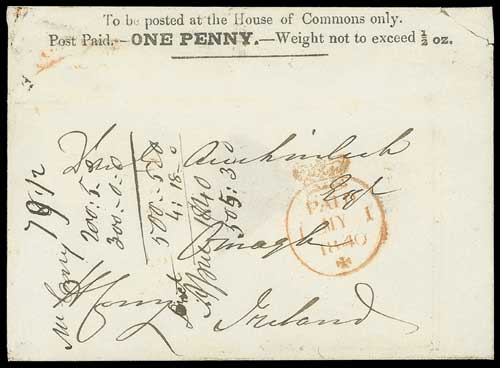 To be posted at the House of Commons only.
Post Paid.—ONE PENNY.—Weight not to exceed ½ oz.
Auchinleck
Esqr
Omagh
Ireland
PAID
1 MY 1
1840
79½
200:5:8
300:0:0
500:5:8
4:18:0
505:3:0